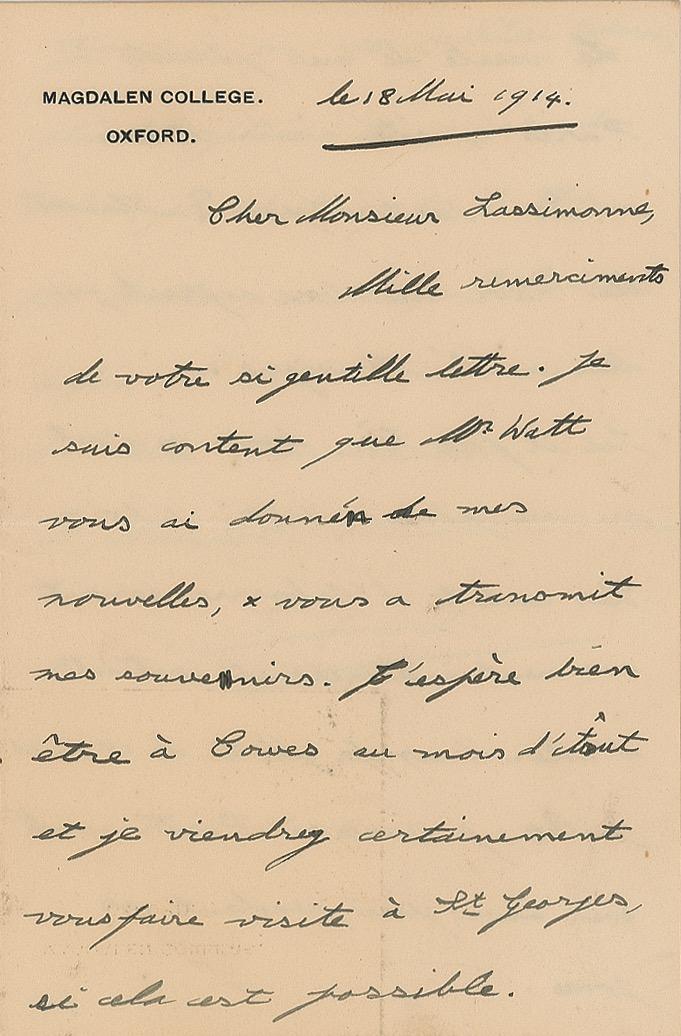 MAGDALEN COLLEGE.
OXFORD.
le 18 Mai 1914.
Cher Monsieur Lassimonne,
Mille remerciments
de votre si gentille lettre. Je
suis content que Mr Watt
vous ai donné de mes
nouvelles, & vous a transmit
mes souvenirs. J'espère bien
être à Cowes au mois d'Août
et je viendrey certainement
vous faire visite à St Georges,
si cela est possible.